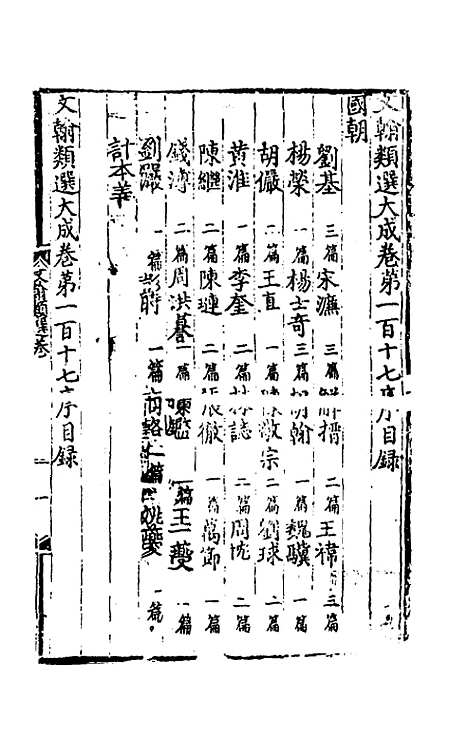 文翰類選大成卷第一百十七序目録
國朝
劉基 三篇 宋濂 三篇 解縉 二篇 王褘 三篇
楊榮 一篇 楊士奇 三篇 胡翰 一篇 魏驥 一篇
胡儼 二篇 王直 一篇 陳敬宗 二篇 劉球 一篇
黃淮 一篇 李奎 二篇 林誌 二篇 周忱 二篇
陳繼 二篇 陳璉 二篇 張徹 一篇 萬節 一篇
錢溥 二篇 周洪謩 一篇 陳鑑 一篇 王一夔 一篇
劉儼 一篇 時 一篇 柯 一篇 姚夔 一篇
計本義
文翰類選大成卷第一百十七序目録
文翰類選卷